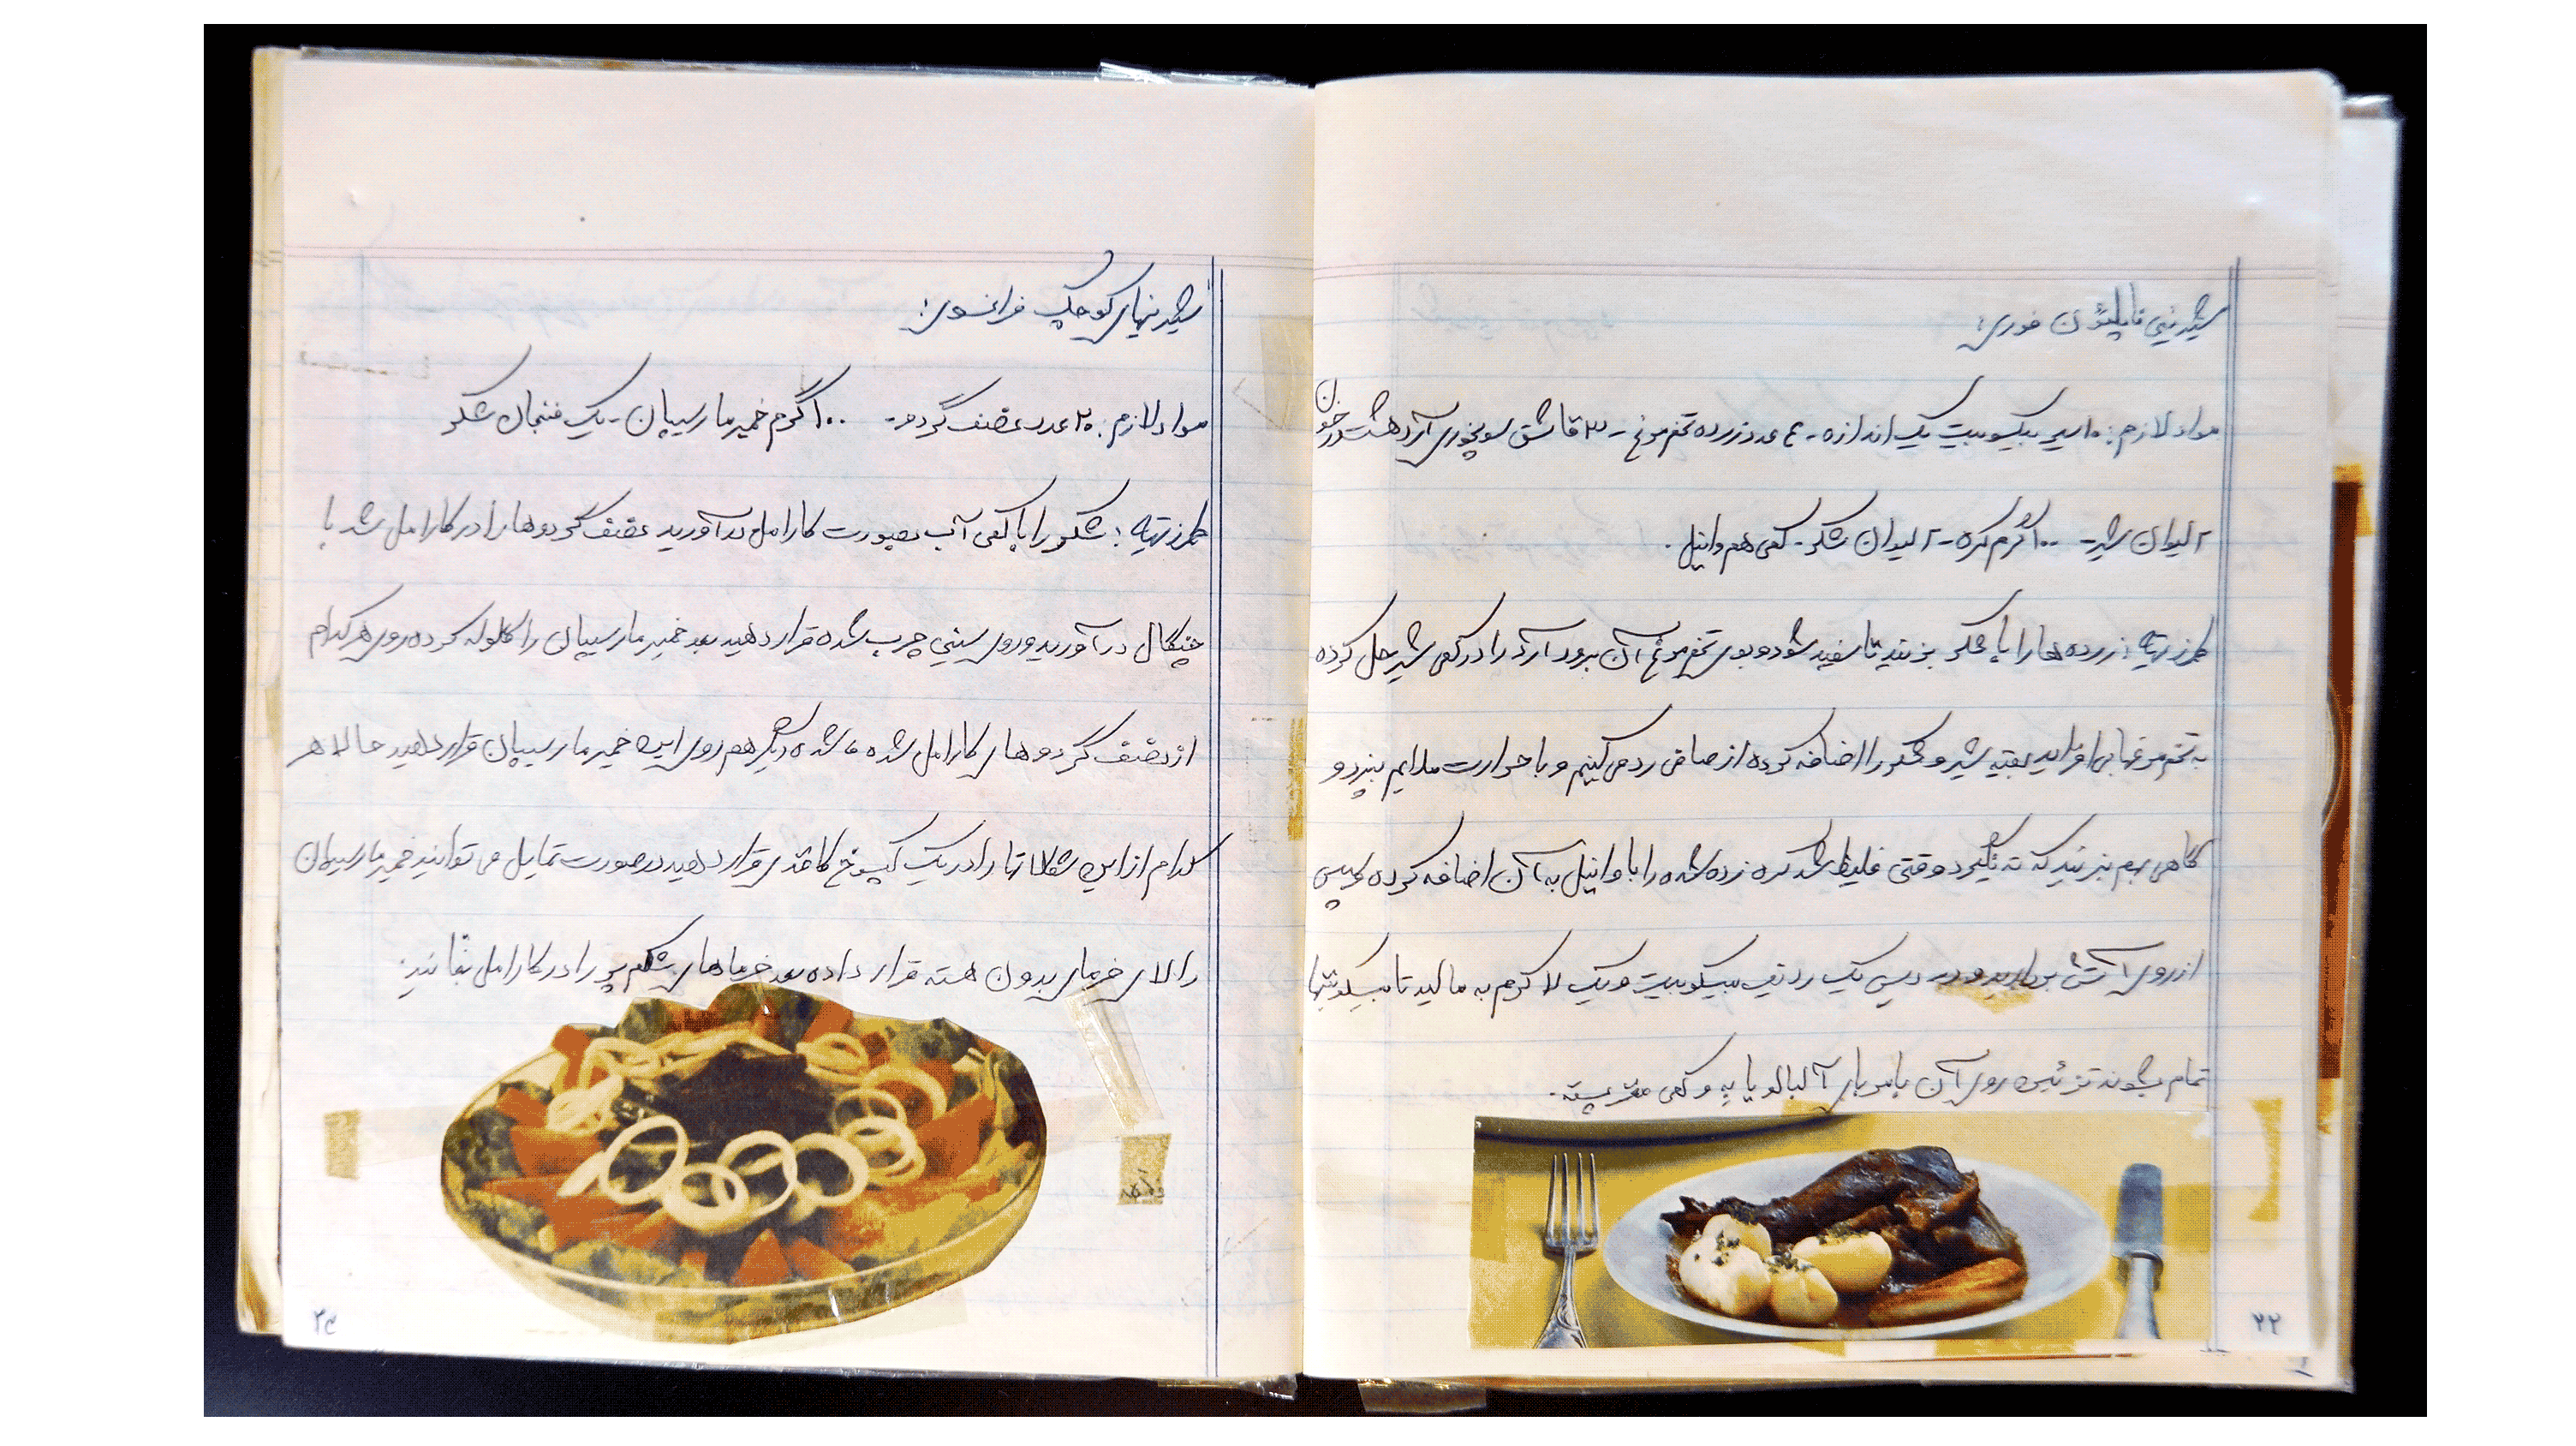 شیرینی ناپلئون فوری:
مواد لازم: ۱۰ سیر بیسکوییت یک اندازه - ۴ عدد زرده تخم مرغ - ۳ قاشق سوپخوری آرد هشت درخون
۲ لیوان شیر - ۱۰۰ گرم کره - ۲ لیوان شکر - کمی هم وانیل .
طرز تهیه : زرده ها را با شکر بزنید تا سفید شود و بوی تخم مرغ آن برود آرد را در کمی شیر حل کرده
به تخم مرغها بیافزایید بقیه شیر و شکر را اضافه کرده از صافی رد می کنیم و با حرارت ملایم بپزد و
گاهی بهم بزنید که ته نگیرد وقتی غلیظ شد کره زده شده را با وانیل به آن اضافه کرده سپس
از روی آتش بردارید و در دیس یک ردیف بیسکوییت و یک لا کرم به مالید تا بیسکوتیها
تمام بشوند تزئین روی آن با مربای آلبالو یا به و کمی مغز پسته .
۲۲
شیرینیهای کوچک فرانسوی:
مواد لازم: ۲۰ عدد نصف گردو - ۱۰۰ گرم خمیر مارسیپان - یک فنجان شکر
طرز تهیه : شکر را با کمی آب بصورت کارامل درآورید نصف گردوها را در کارامل شد با
چنگال درآورید و روی سینی چرب شده قرار دهید بعد خمیر مارسیپان را گلوله کرده روی هر کدام
از نصف گردوهای کارامل شده دیگر هم روی این خمیر مارسیپان قرار دهید حالا هر
کدام از این شکلاتها را در یک کپسوخ کاغذی قرار دهید در صورت تمایل می توانید خمیر مارسیپان
را لای خرمای بدون هسته قرار داده بعد خرماهای شکم پر را در کارامل بغلتانید.